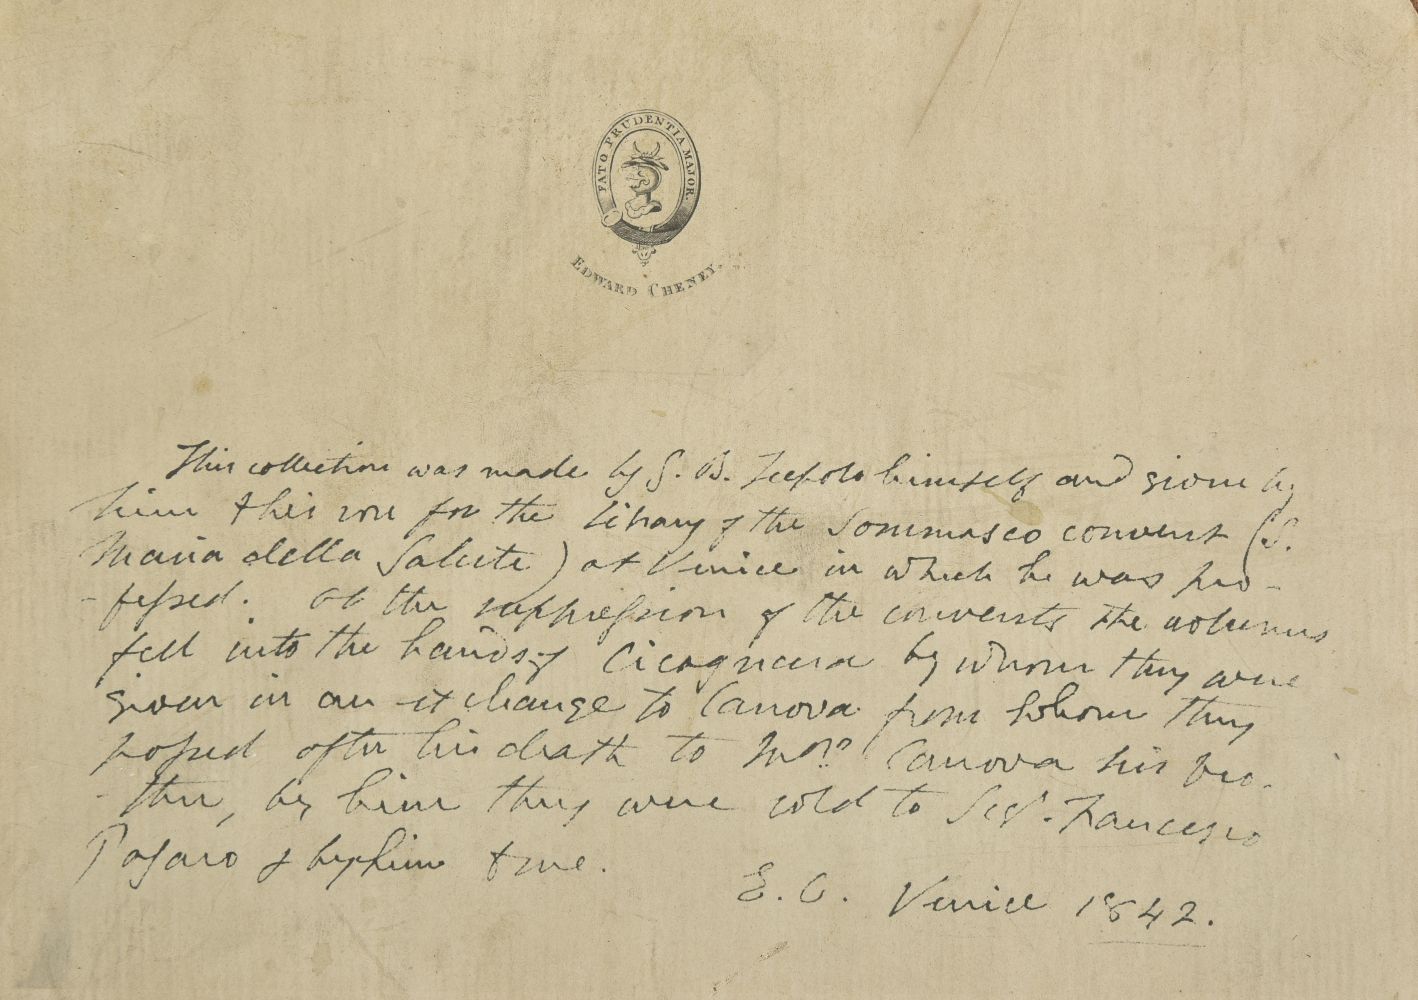 FATO PRUDENTIA MAJOR.
EDWARD CHENEY.
This collection was made by G. B. Tiepolo himself and given by
him to his son for the library of the Sommasco convent (S.
Maria della Salute) at Venice in which he was pro-
-fessed. at the suppression of the convents the volumes
fell into the hands of Cicognara by whom they were
given in an exchange to Canova from whom they
passed after his death to Monr. Canova his bro-
-ther, by him they were sold to Sigr. Francesco
Pesaro & by him to me.
E. C. Venice 1842.